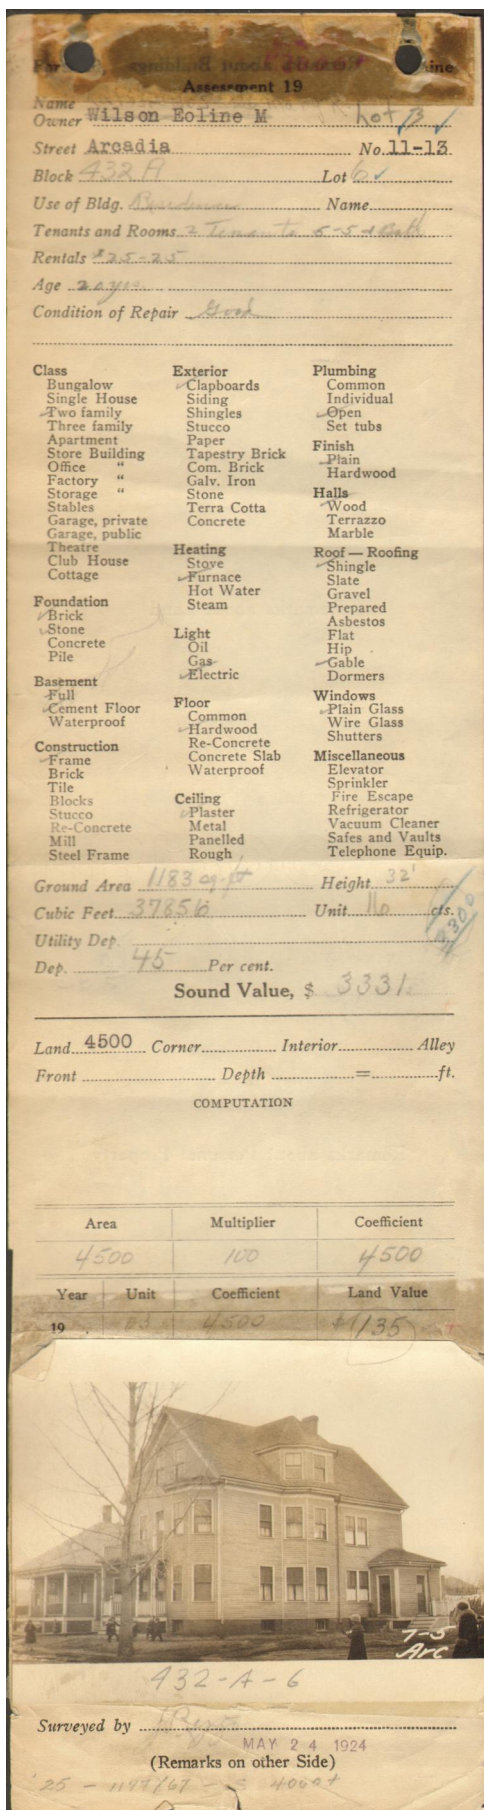 For
ine
Assessment 19
Name
Owner Wilson Eoline M Lot B
Street Arcadia No. 11-13
Block 432A Lot 6
Use of Bldg. Residence Name
Tenants and Rooms 2 Tenants 5-5 & Bath
Rentals $25-25
Age 20 yrs
Condition of Repair Good
Class
Bungalow
Single House
Two family
Three family
Apartment
Store Building
Office "
Factory "
Storage "
Stables
Garage, private
Garage, public
Theatre
Club House
Cottage
Foundation
Brick
Stone
Concrete
Pile
Basement
Full
Cement Floor
Waterproof
Construction
Frame
Brick
Tile
Blocks
Stucco
Re-Concrete
Mill
Steel Frame
Exterior
Clapboards
Siding
Shingles
Stucco
Paper
Tapestry Brick
Com. Brick
Galv. Iron
Stone
Terra Cotta
Concrete
Heating
Stove
Furnace
Hot Water
Steam
Light
Oil
Gas
Electric
Floor
Common
Hardwood
Re-Concrete
Concrete Slab
Waterproof
Ceiling
Plaster
Metal
Panelled
Rough
Plumbing
Common
Individual
Open
Set tubs
Finish
Plain
Hardwood
Halls
Wood
Terrazzo
Marble
Roof — Roofing
Shingle
Slate
Gravel
Prepared
Asbestos
Flat
Hip
Gable
Dormers
Windows
Plain Glass
Wire Glass
Shutters
Miscellaneous
Elevator
Sprinkler
Fire Escape
Refrigerator
Vacuum Cleaner
Safes and Vaults
Telephone Equip.
Ground Area 1183 sq. ft Height 32'
Cubic Feet 37856 Unit 16 cts.
3300
Utility Dep.
Dep. 45 Per cent.
Sound Value, $ 3331.
Land 4500 Corner Interior Alley
Front Depth = ft.
COMPUTATION
Area Multiplier Coefficient
4500 100 4500
Year Unit Coefficient Land Value
19 03 4500 $135
7-5
Arc
432-A-6
Surveyed by
MAY 24 1924
(Remarks on other Side)
'25 - 1197/67 - $ 4000+